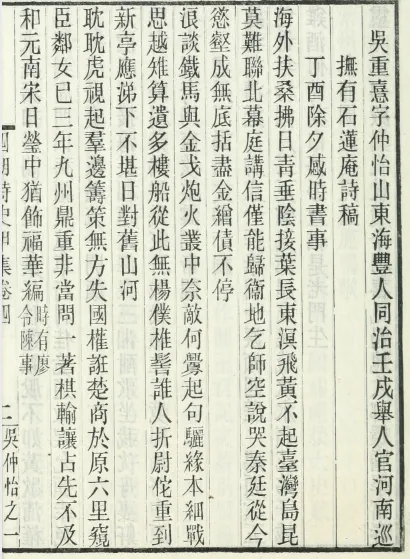 吳重憙字仲怡山東海豐人同治壬戌舉人官河南巡
撫有石蓮庵詩稿
丁酉除夕感時書事
海外扶桑拂日青垂陰接葉長東溟飛黃不起臺灣島昆
莫難聯北幕庭講信僅能歸衞地乞師空說哭秦廷從今
慾壑成無底括盡金繒債不停
浪談鐵馬與金戈炮火叢中奈敵何釁起句驪緣本細戰
思越雉算遺多樓船從此無楊僕椎髻誰人折尉佗重到
新亭應涕下不堪日對舊山河
耽耽虎視起羣邊籌策無方失國權誑楚商於原六里窺
臣鄰女已三年九州鼎重非當問一著棋輸讓占先不及
和元南宋日瑩中猶飾福華編時有廖
令陳事
國朝詩史甲集卷四
二吳仲怡之一